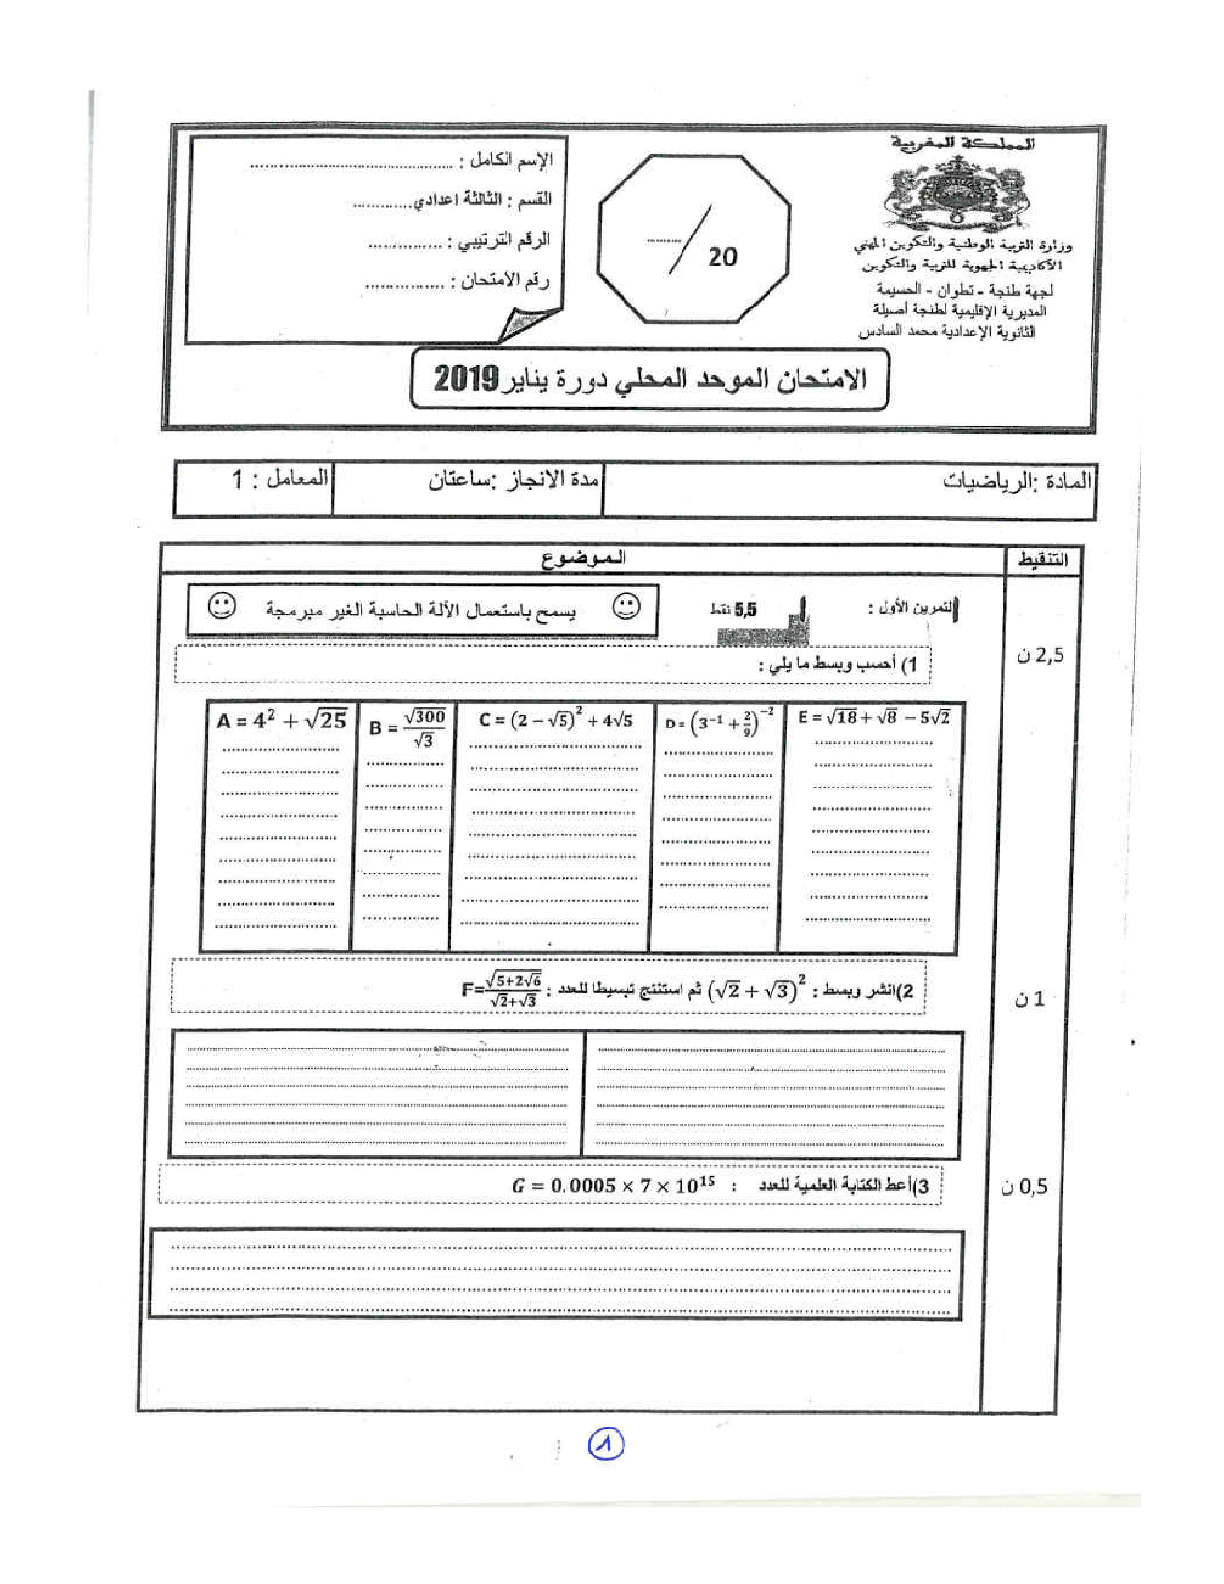 المملكة المغربية
وزارة التربية الوطنية والتكوين المهني
الأكاديمية الجهوية للتربية والتكوين
لجهة طنجة - تطوان - الحسيمة
المديرية الإقليمية لطنجة أصيلة
الثانوية الإعدادية محمد السادس
......./20
الإسم الكامل : ......................................
القسم : الثالثة اعدادي............
الرقم الترتيبي : ..............
رقم الامتحان : ................
الامتحان الموحد المحلي دورة يناير 2019
المادة :الرياضيات
مدة الانجاز :ساعتان
المعامل : 1
التنقيط
الموضوع
التمرين الأول : 5,5 نقط
يسمح باستعمال الألة الحاسبة الغير مبرمجة
2,5 ن
1) أحسب وبسط ما يلي :
A = 4² + √25
B = √300/√3
C = (2 − √5)² + 4√5
D = (3⁻¹ + 2/9)⁻²
E = √18 + √8 − 5√2
1 ن
2)انشر وبسط : (√2 + √3)² ثم استنتج تبسيطا للعدد : F=√(5+2√6)/(√2+√3)
0,5 ن
3)أعط الكتابة العلمية للعدد : G = 0.0005 × 7 × 10¹⁵
1